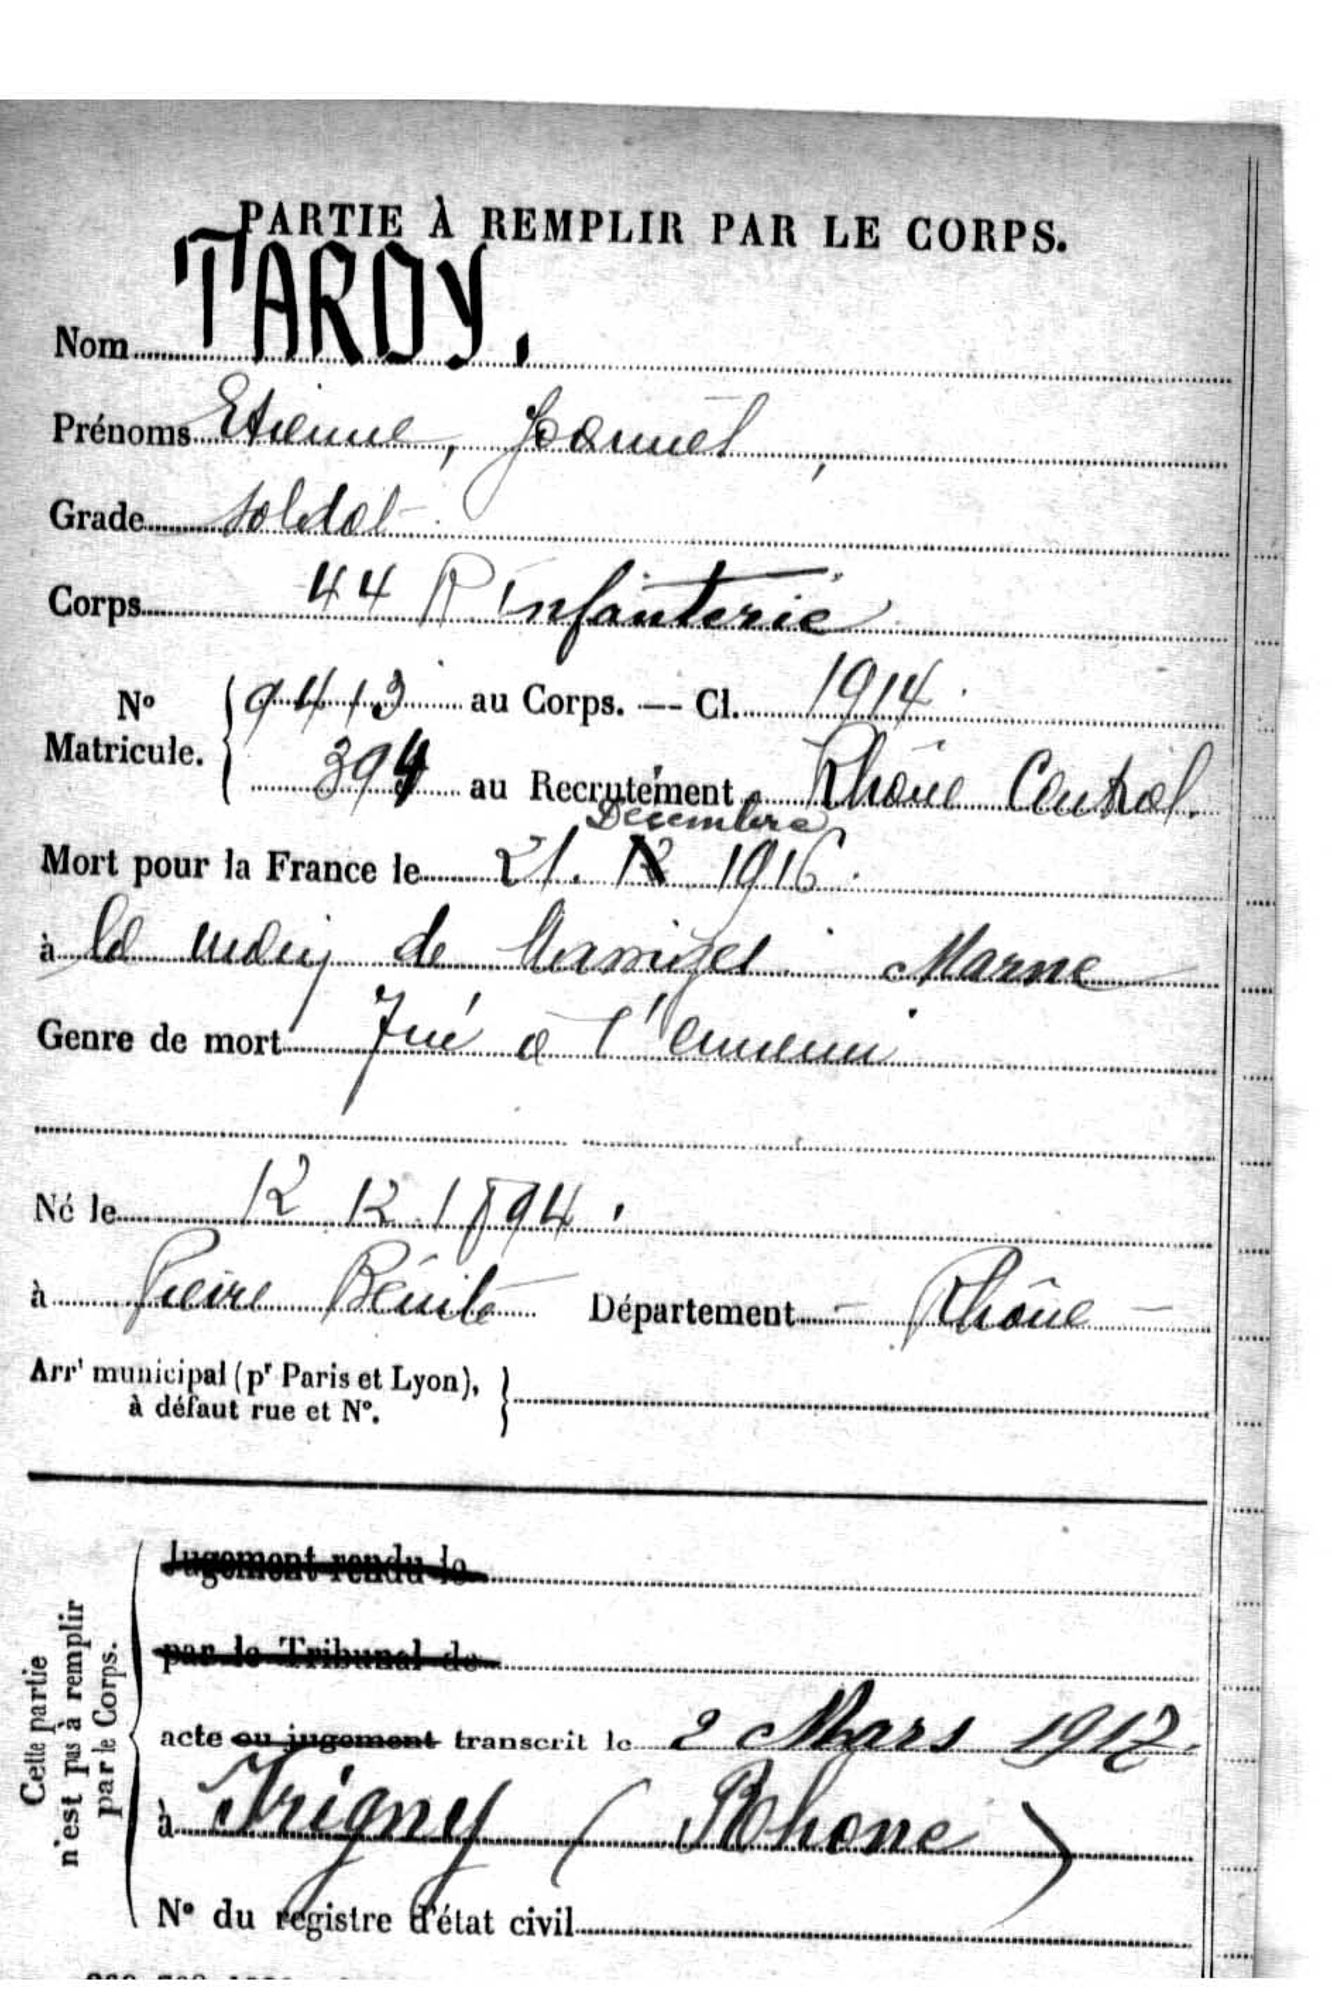 PARTIE À REMPLIR PAR LE CORPS.
Nom TARDY.
Prénoms Etienne, Joannès,
Grade soldat
Corps 44 R Infanterie
No Maticule. { 9413 au Corps. — Cl. 1914.
394 au Recrutement Rhône Central.
Décembre
Mort pour la France le 21. 1916.
à la main de Massiges Marne
Genre de mort Tué à l'ennemi
Né le 12 12 1894.
à Pierre Bénite Département - Rhône -
Arrt municipal (pr Paris et Lyon),
à défaut rue et No.
Cette partie n'est pas à remplir par le Corps.
Jugement rendu le
par le Tribunal de
acte ou jugement transcrit le 2 Mars 1917.
à Irigny (Rhone)
No du registre d'état civil